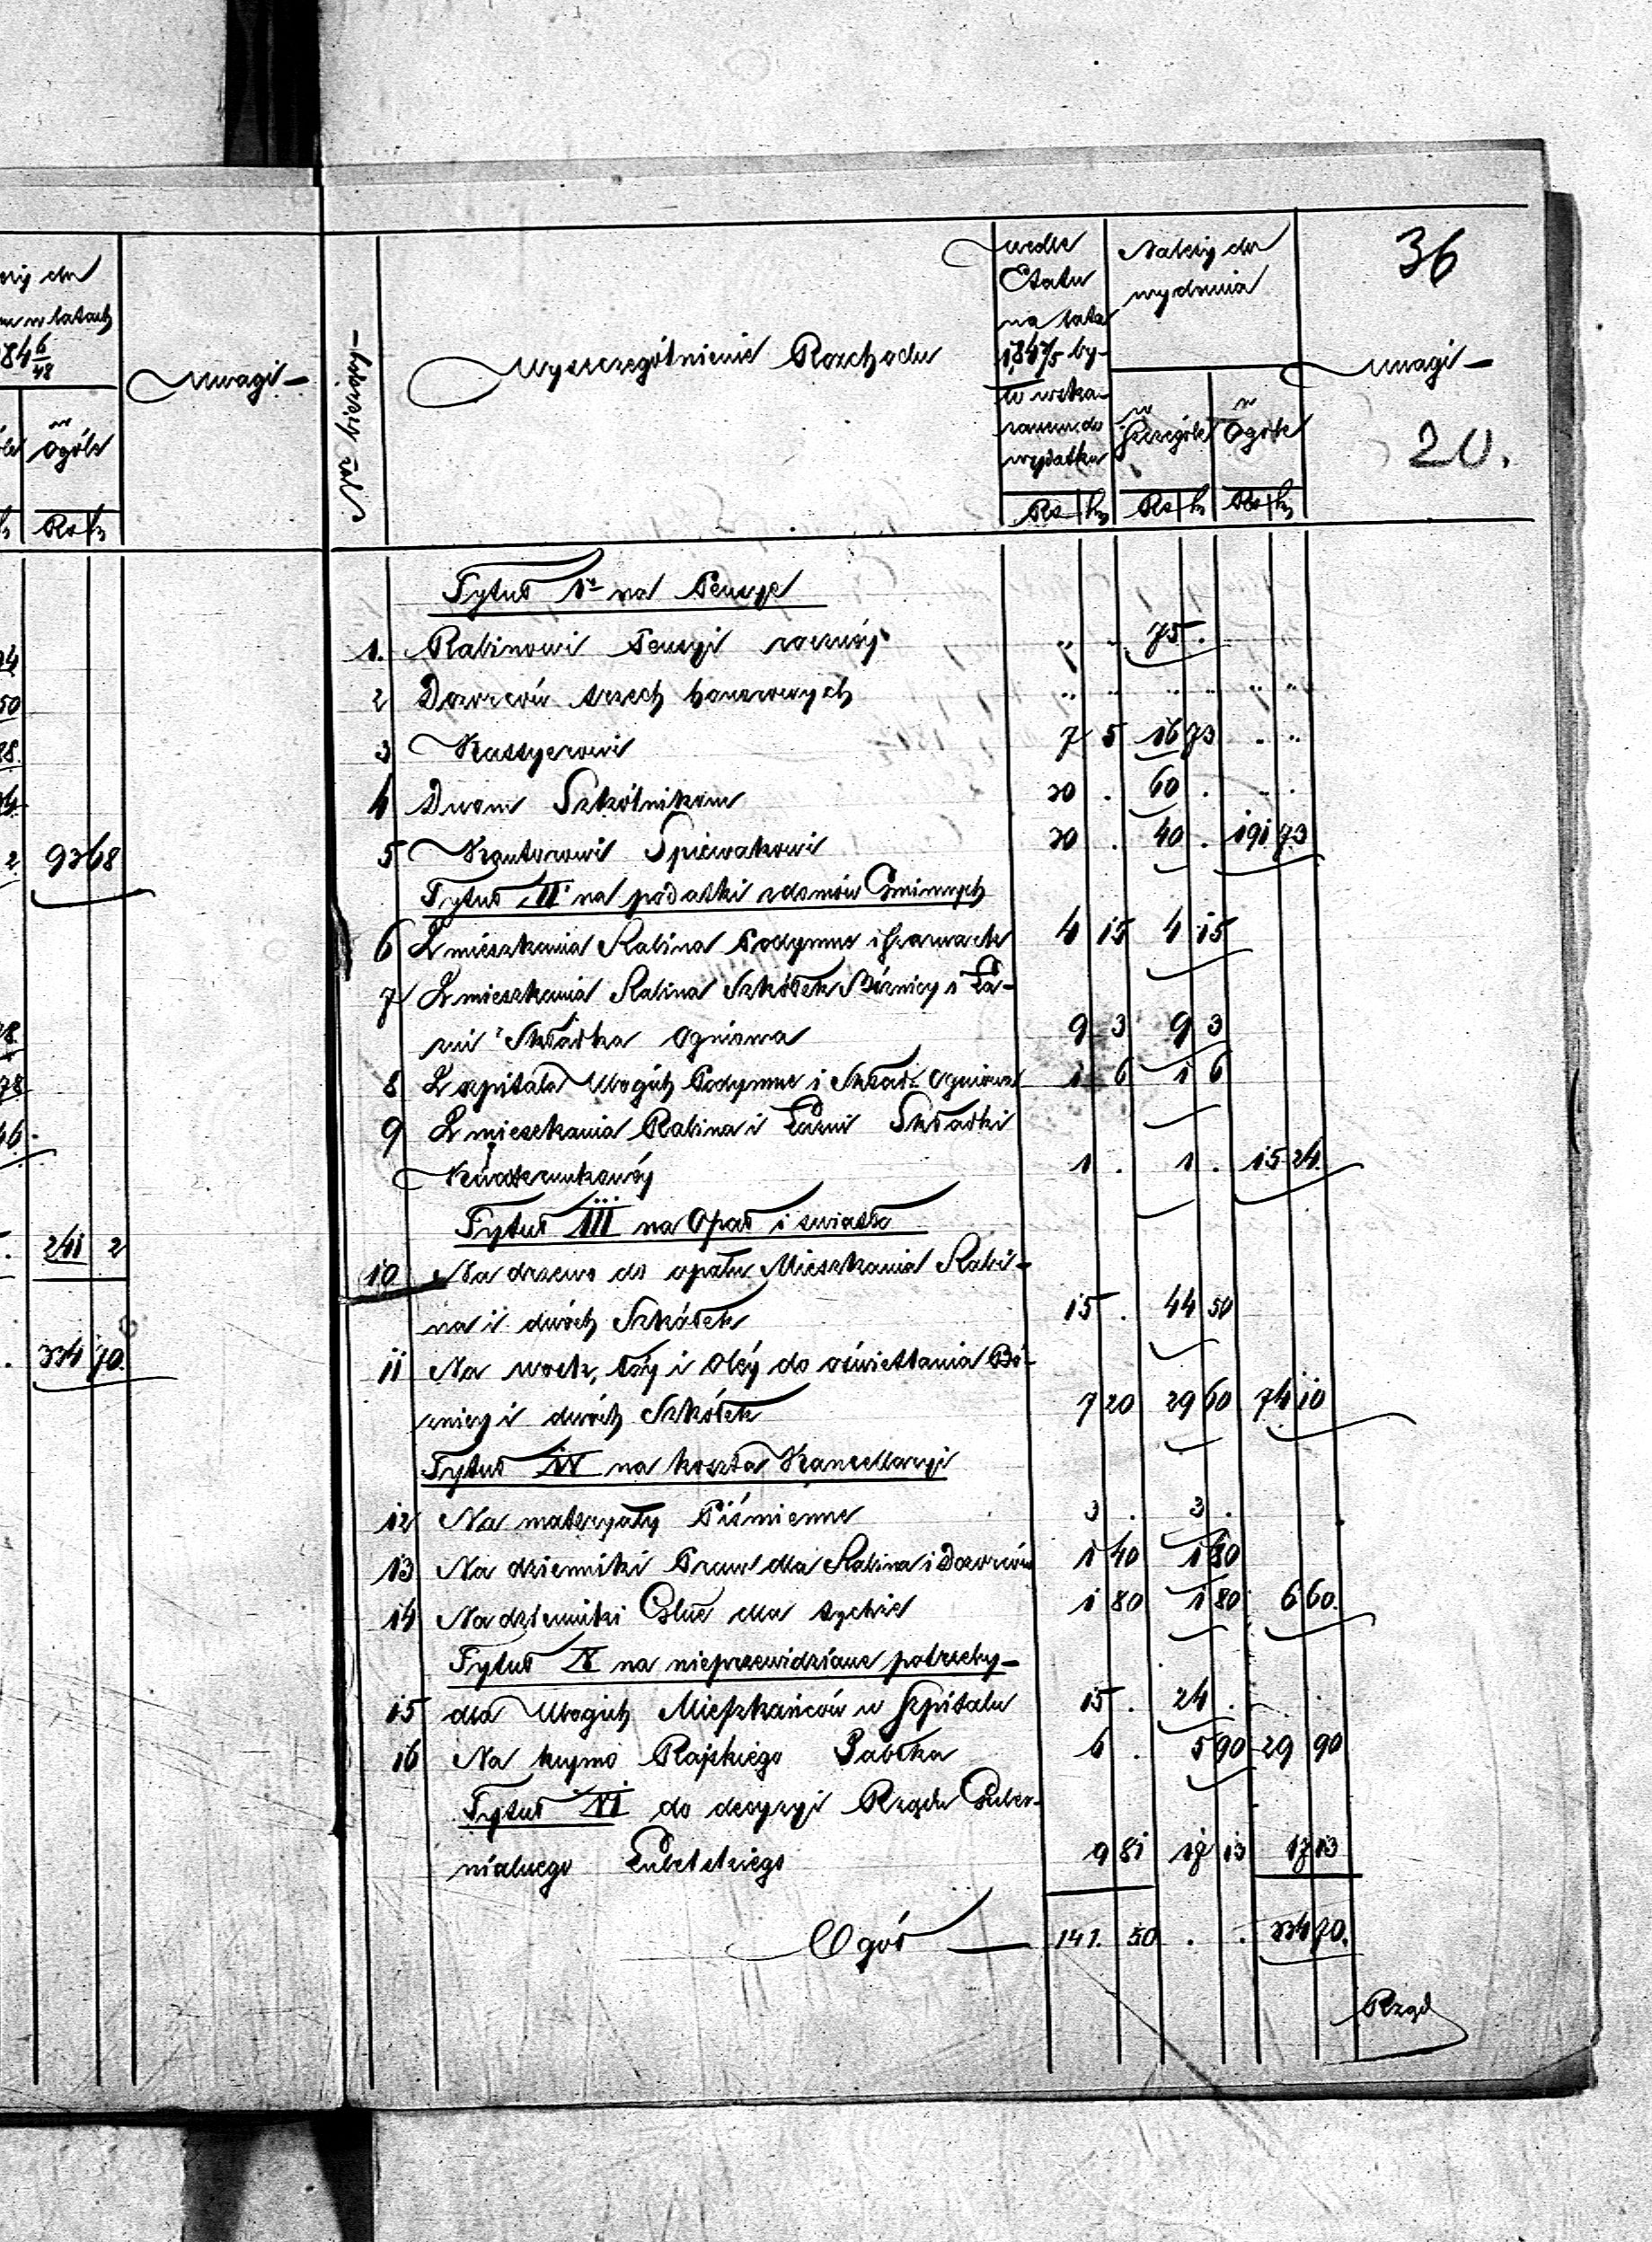 36
20.
Uwagi
w Ogóle
Rs k
93 68
241 2
334 70.
Wyszczególnienie Rozchodu
wedle
Etatu
na lata
184 3/5 by-
ło wska-
zanem do
wydatku
Rs k
Należy do
wydania
w Szczególe
Rs k
w Ogóle
Rs k
Uwagi
Tytuł I na Pensye
1. Rabinowi Pensyi rocznéj " " 75 .
2 Dozorców trzech honorowych " " " " " "
3 Kassyerowi 7 5 16 73 " "
4 Dwom Szkolnikom 20 . 60 . . .
5 Kantorowi Spiewakowi 20 . 40 . 191 73
Tytuł II na podatki z domów Gminnych
6 Z mieszkania Rabina Podymne i Szarwark 4 15 4 15
7 Z mieszkania Rabina Szkółek Bóżnicy i Ła-
zni Składka Ogniowa 9 3 9 3
8 Z szpitala Ubogich Podymne i Skład: Ogniowa 1 6 1 6
9 Z mieszkania Rabina i Łazni Składki
Kwaterunkowéj 1 . 1 . 15 24.
Tytuł III na Opał i swiatło
10 Na drzewo do opału Mieszkania Rabi-
na i dwóch Szkółek 15 . 44 50
11 Na wosk, łóy i oléy do oświetlania Bó-
znicy i dwóch Szkółek 7 20 29 60 74 10
Tytuł IV na koszta Kancellaryi
12 Na materyały Piśmienne 3 . 3 .
13 Na dzienniki Praw dla Rabina i Dozorców 1 40 1 80
14 Na dzienniki dla tychże 1 80 1 80 6 60.
Tytuł V na nieprzewidziane potrzeby
15 dla Ubogich Mieszkańców w Szpitalu 15 . 24 . . .
16 Na kupno Rajskiego Jabłka 6 . 5 90 29 90
Tytuł VI do decyzyi Rządu Guber-
nialnego Lubelskiego 9 81 17 13 17 13
Ogół 141. 50 . . 334 70.
Rząd